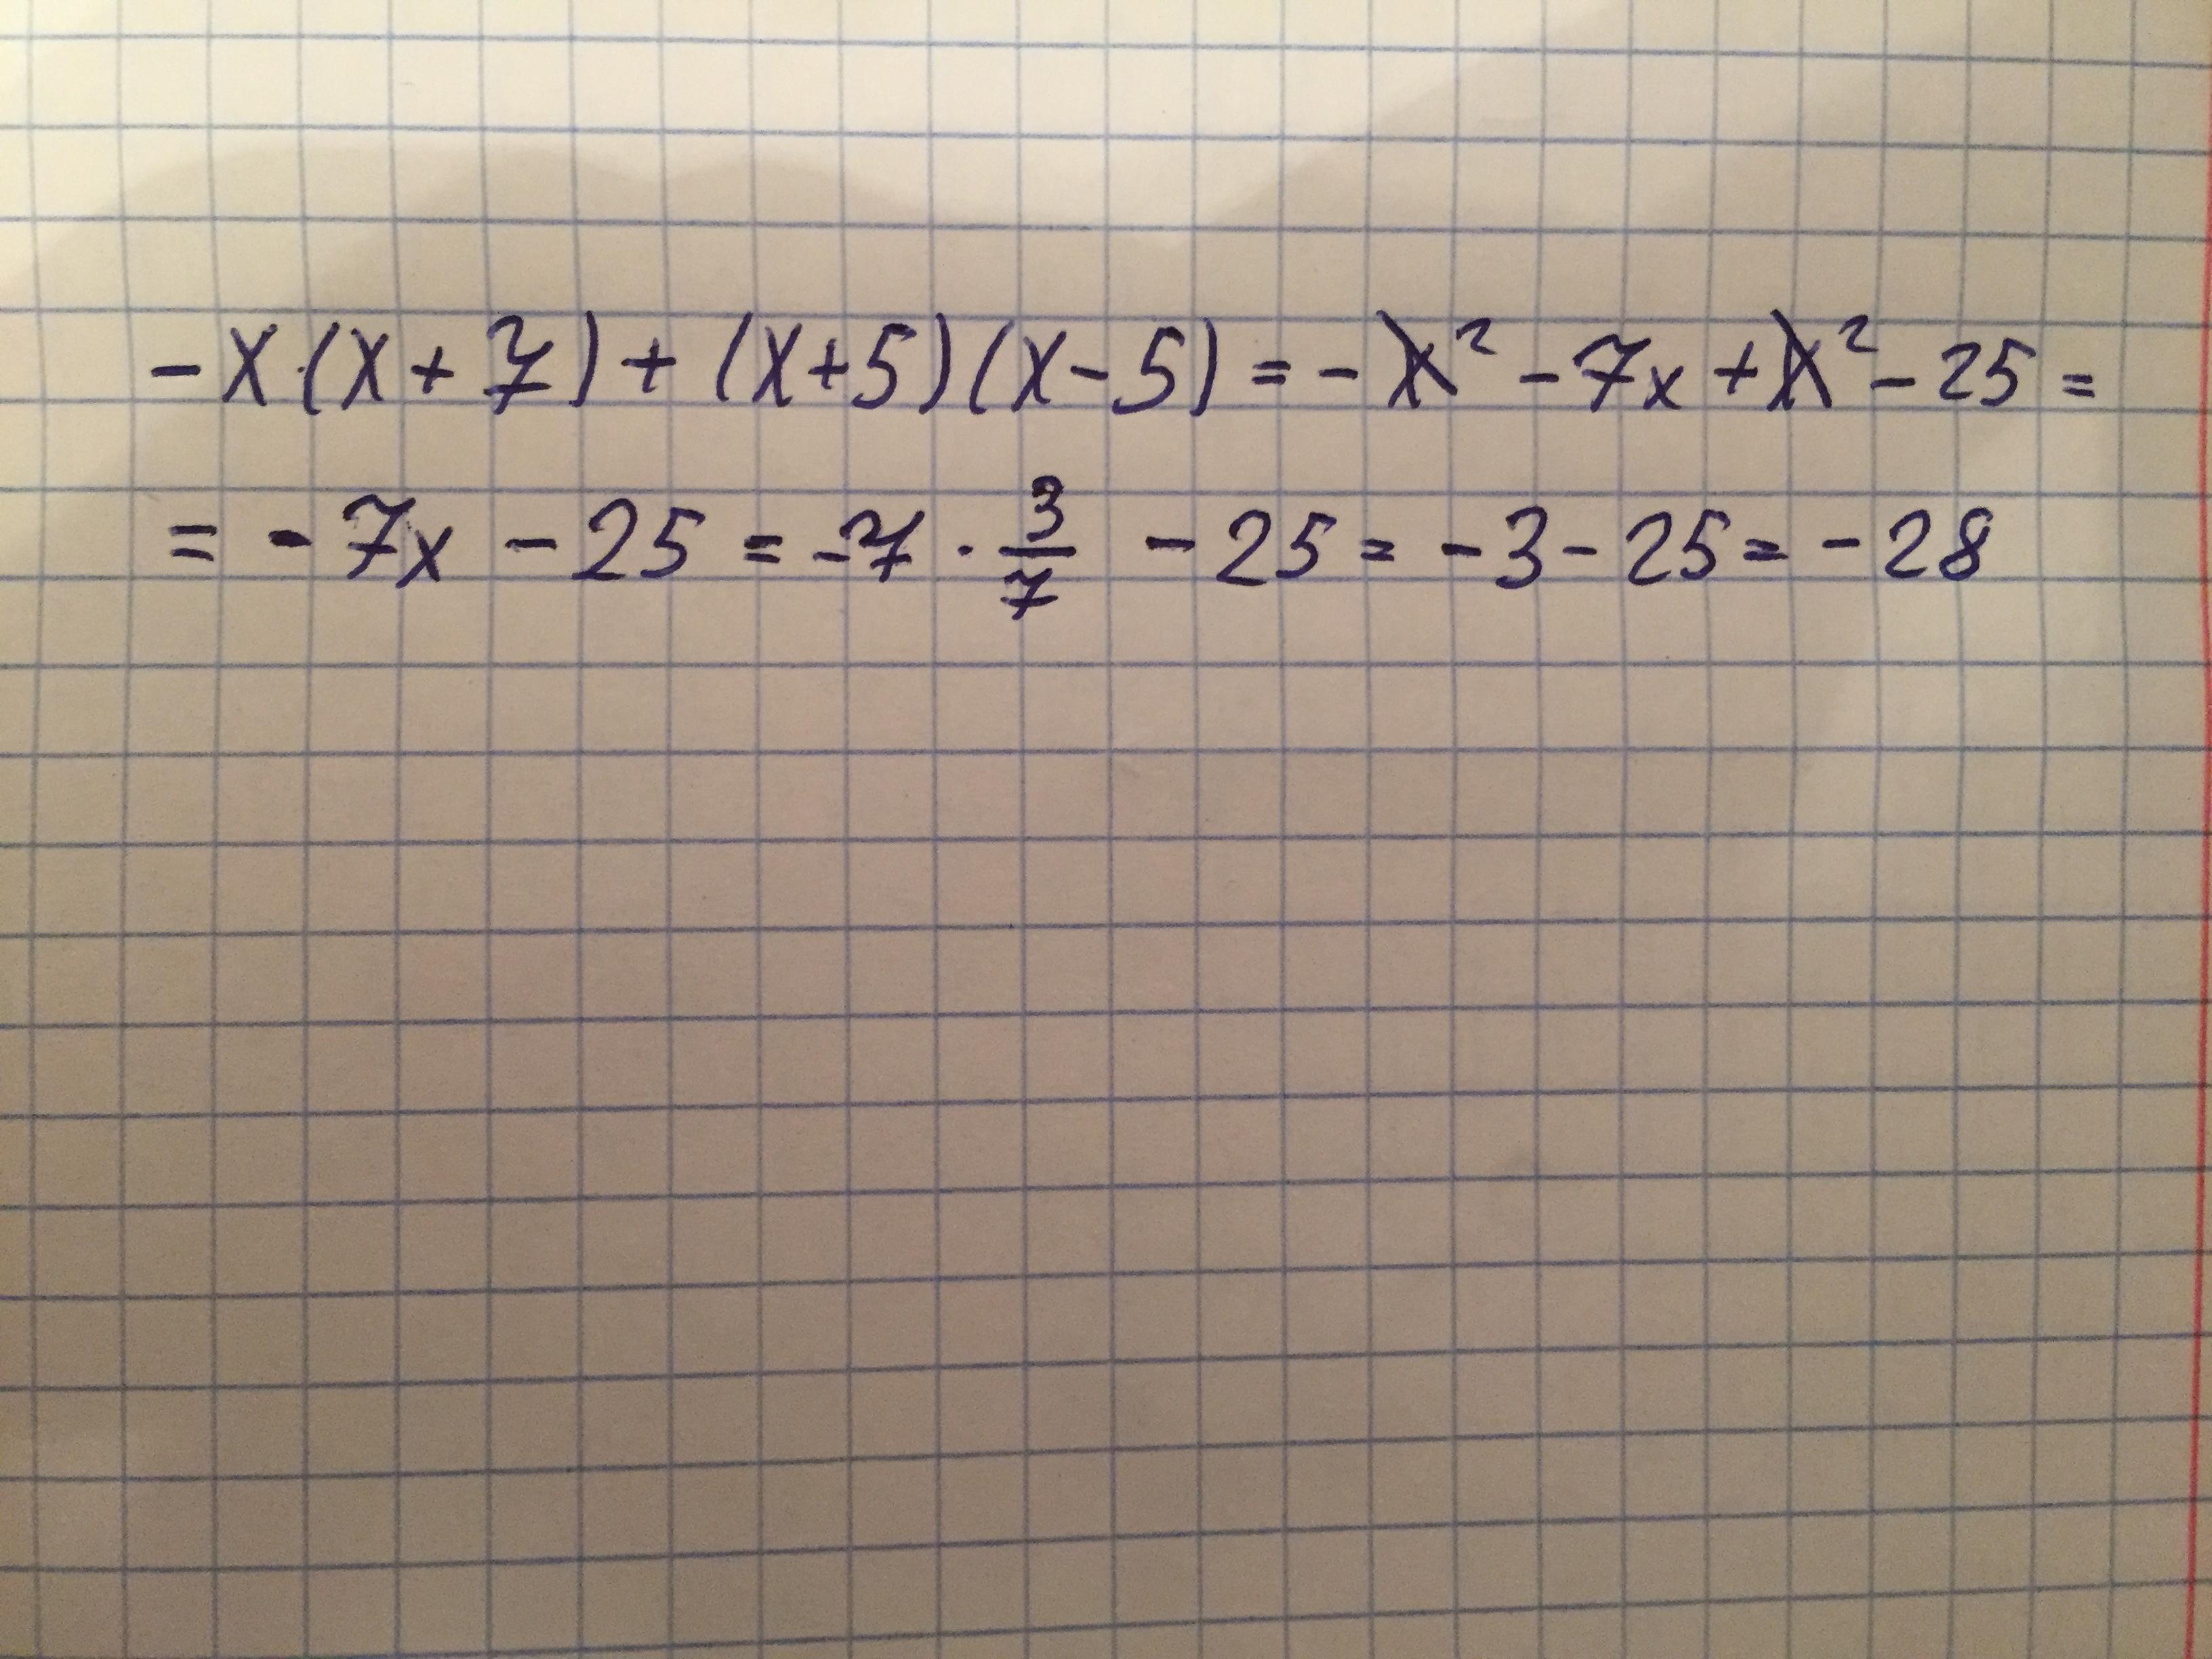 -x·(x+7)+(x+5)(x-5)=-x²-7x+x²-25=
=-7x-25=-7·3/7-25=-3-25=-28